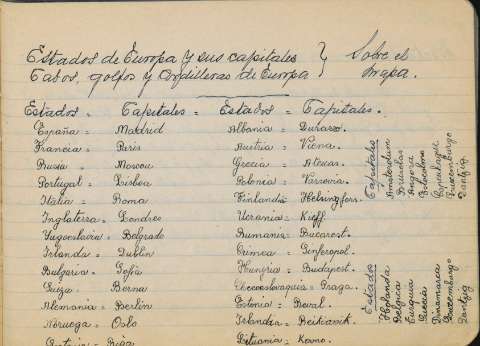 Estados de Europa y sus capitales } Sobre el
Cabos, golfos y Cordilleras de Europa } mapa.
Estados = Capitales = Estados = Capitales.
España = Madrid Albania = Durazo.
Francia = Paris Austria = Viena.
Rusia = Moscou Grecia = Atenas.
Portugal = Lisboa Polonia = Varsovia.
Italia = Roma Finlandia = Helsingfors.
Inglaterra = Londres Ucrania = Kieff.
Yugoeslavia = Belgrado Rumania = Bucarest.
Irlanda = Dublin Crimea = Sinferopol.
Bulgaria = Sofia Hungria = Budapest.
Suiza = Berna Checoeslovaquia = Praga.
Alemania = Berlin Estonia = Reval.
Noruega = Oslo Islandia = Reikiavik.
Riga Lituania = Kovno.
Estados Capitales
Holanda Amsterdam
Belgica Bruselas
Turquia Angora
Suecia
Dinamarca Copenhague
Luxemburgo Luxemburgo
Dantzig Dantzig